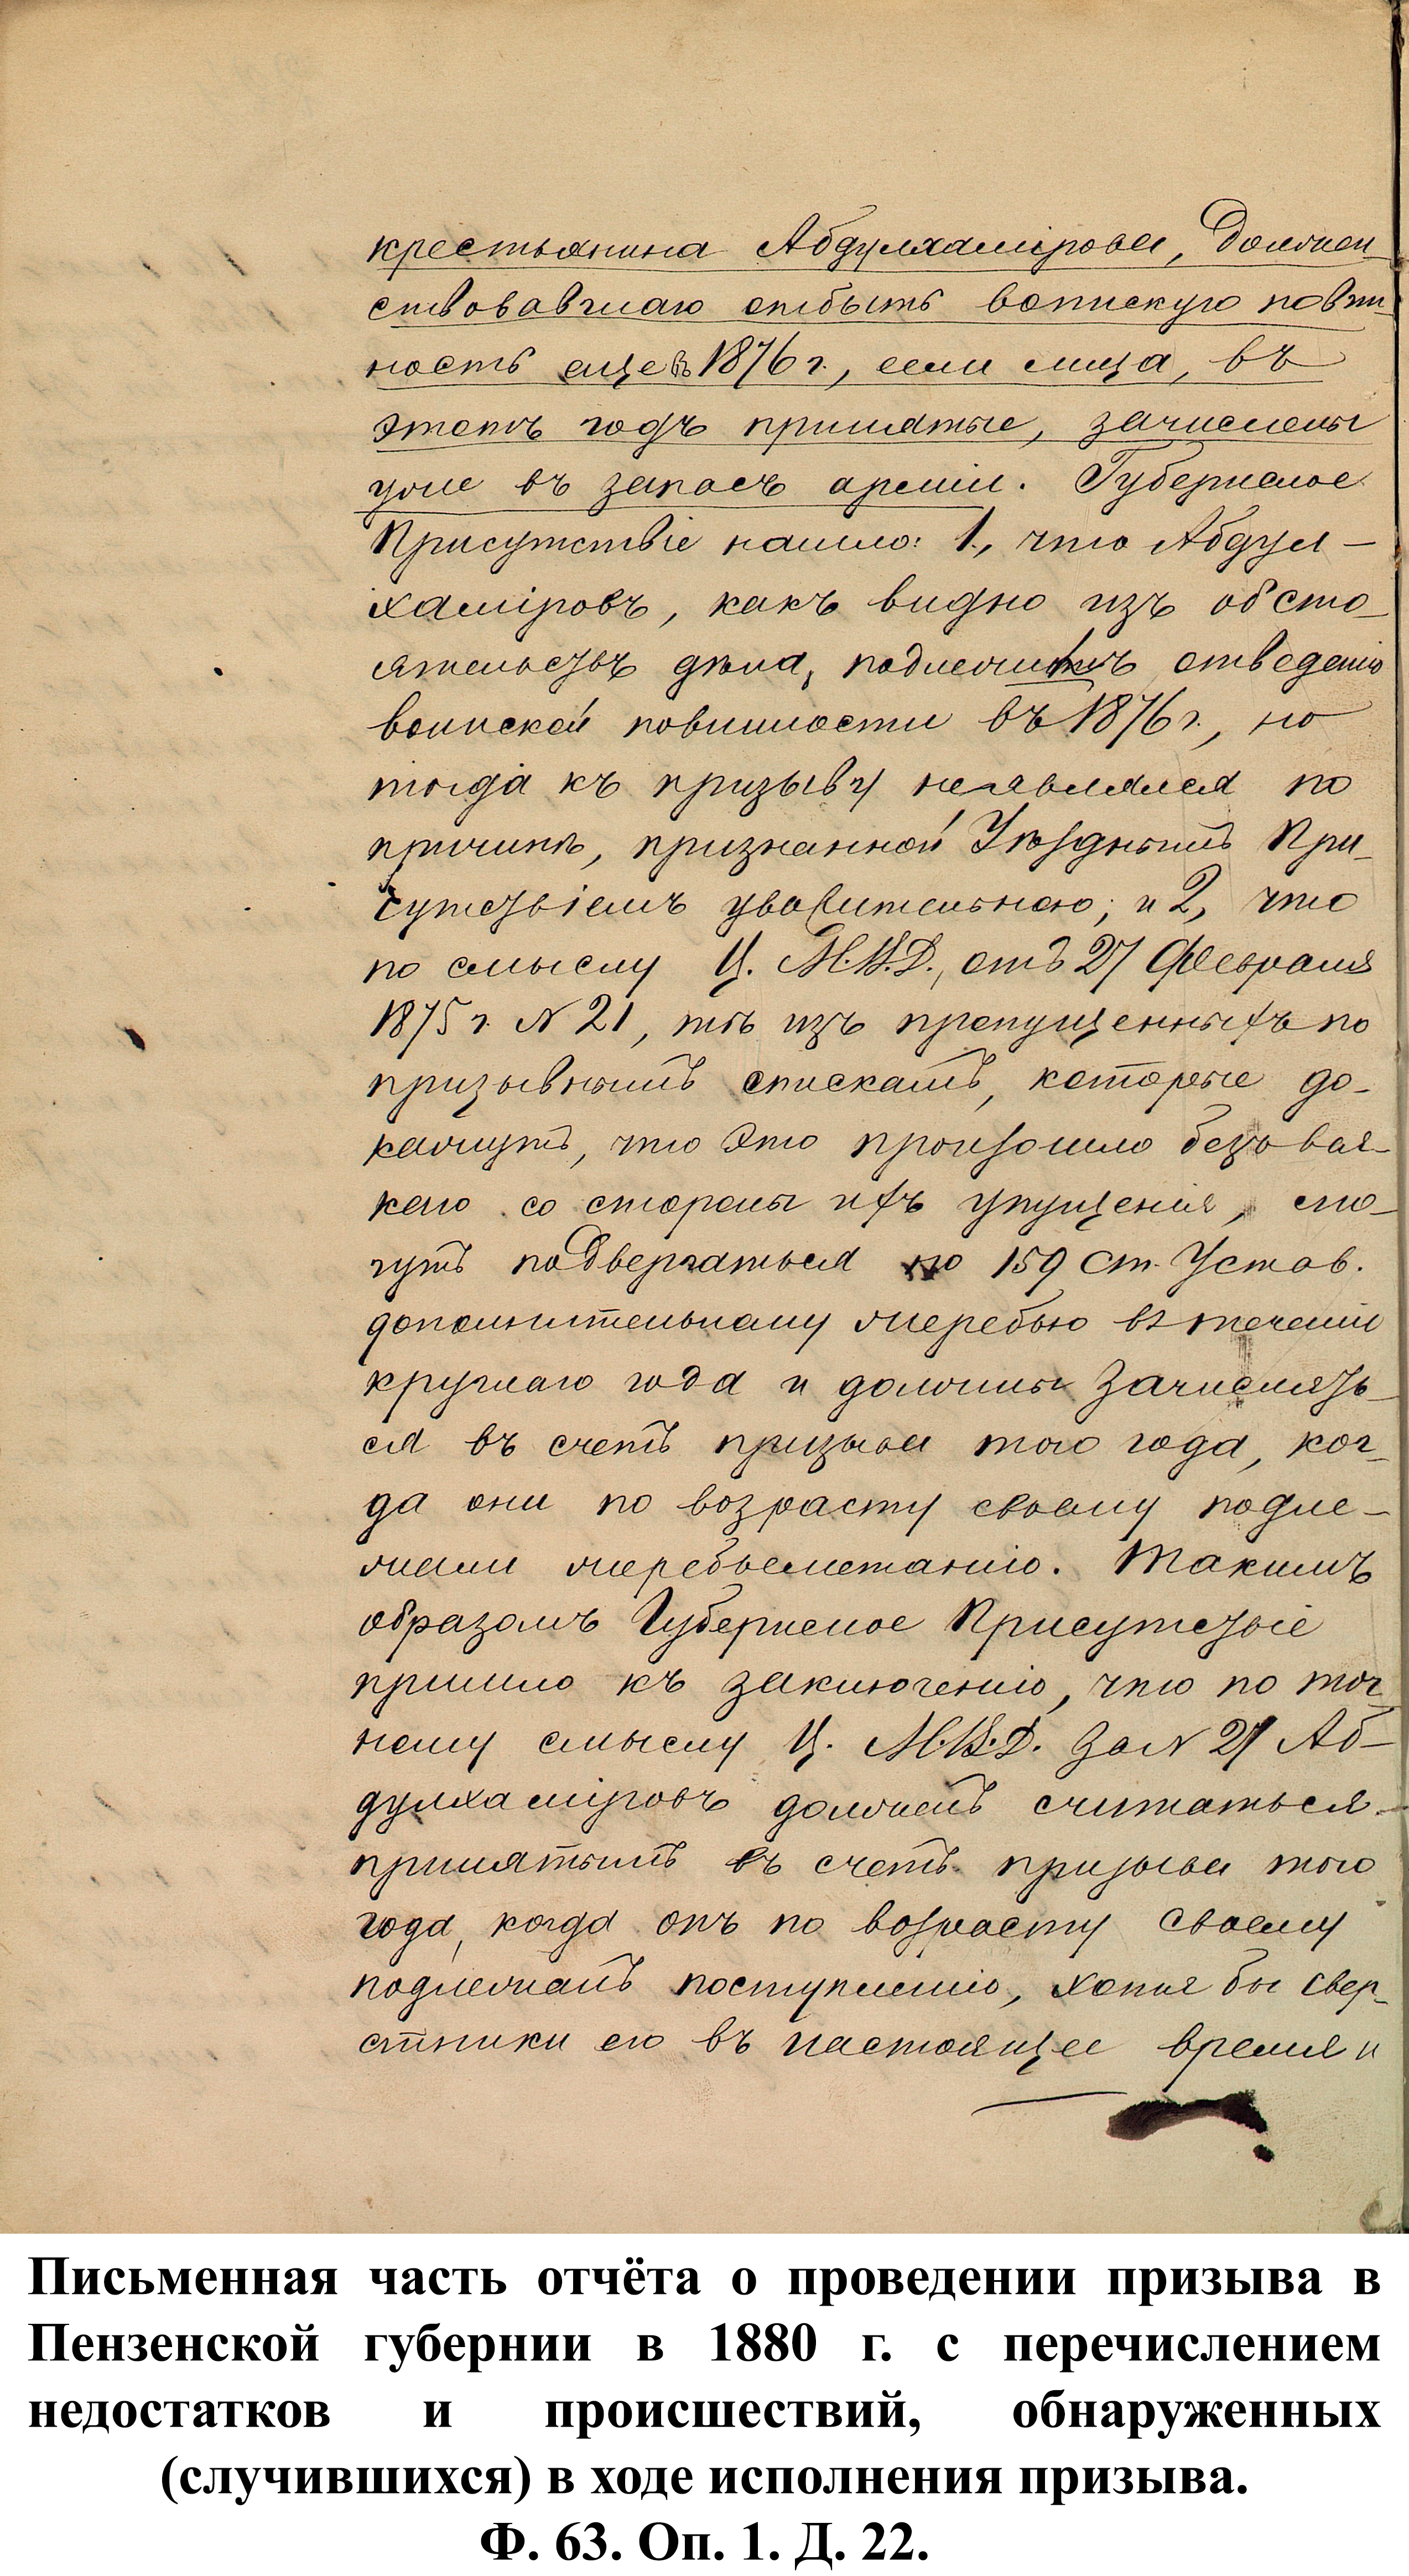 крестьянина Абдулхамірова, должен-
ствовавшаго отбыть воинскую повин-
ность еще въ 1876 г., если лица, въ
этотъ годъ принятые, зачислены
уже въ запасъ арміи. Губернское
Присутствіе нашло: 1., что Абдул-
хаміровъ, какъ видно изъ обсто-
ятельствъ дѣла, подлежитъ отведенію
воинской повинности въ 1876 г., но
тогда къ призыву неявлялся по
причинѣ, признанной Уѣзднымъ При-
сутствіемъ уважительною; и 2, что
по смыслу Ц. М.В.Д., отъ 27 Февраля
1875 г. № 21, тѣ изъ пропущенныхъ по
призывнымъ спискамъ, которые до-
кажутъ, что это произошло безъ вся-
каго со стороны ихъ упущенія, мо-
гутъ подвергаться по 159 ст. Устав.
дополнительному жеребью въ теченіи
круглаго года и должны зачислять-
ся въ счетъ призыва того года, ког-
да они по возрасту своему подле-
жали жеребьеметанію. Такимъ
образомъ Губернское Присутствіе
пришло къ заключенію, что по точ-
ному смыслу Ц. М.В.Д. за № 21 Аб-
дулхаміровъ долженъ считаться
принятымъ въ счетъ призыва того
года, когда онъ по возрасту своему
подлежалъ поступленію, хотя бы свер-
стники его въ настоящее время и
Письменная часть отчёта о проведении призыва в
Пензенской губернии в 1880 г. с перечислением
недостатков и происшествий, обнаруженных
(случившихся) в ходе исполнения призыва.
Ф. 63. Оп. 1. Д. 22.